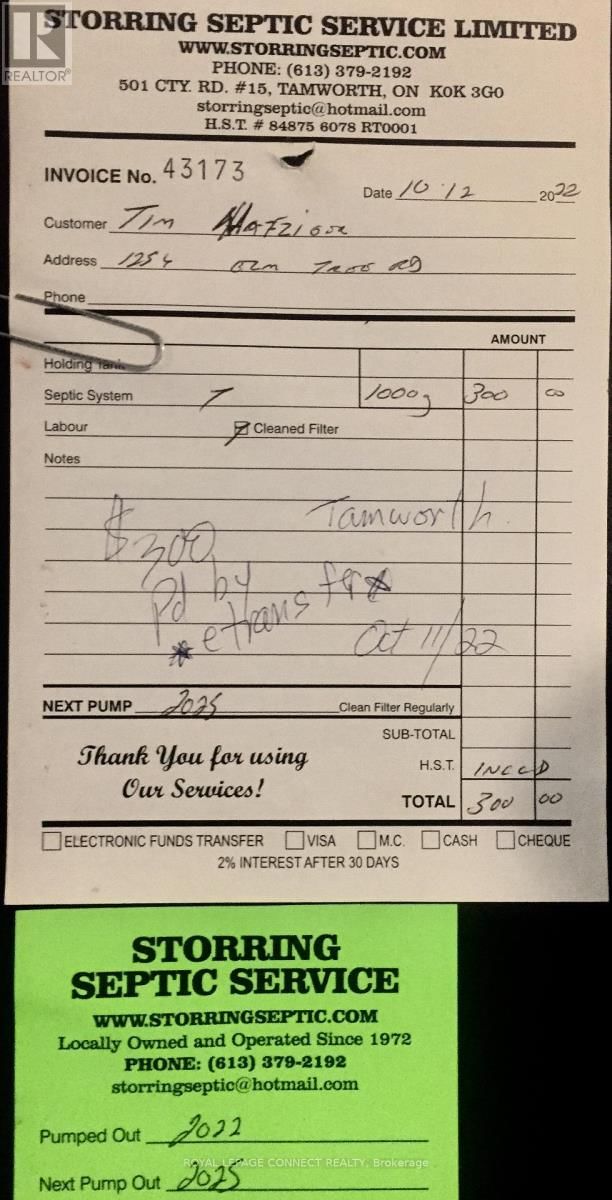 R
REALTOR®
STORRING SEPTIC SERVICE LIMITED
WWW.STORRINGSEPTIC.COM
PHONE: (613) 379-2192
501 CTY. RD. #15, TAMWORTH, ON K0K 3G0
storringseptic@hotmail.com
H.S.T. # 84875 6078 RT0001
INVOICE No. 43173
Date 10 12 2022
Customer Tim
Address 1254 Elm Tree RD
Phone
AMOUNT
Holding Tank
Septic System 1000g 300 00
Labour Cleaned Filter
Notes
Tamworth
$300
Pd by
*etransfer*
Oct 11/22
NEXT PUMP 2025 Clean Filter Regularly
SUB-TOTAL
Thank You for using
Our Services!
H.S.T. INCCD
TOTAL 300 00
ELECTRONIC FUNDS TRANSFER VISA M.C. CASH CHEQUE
2% INTEREST AFTER 30 DAYS
STORRING
SEPTIC SERVICE
WWW.STORRINGSEPTIC.COM
Locally Owned and Operated Since 1972
PHONE: (613) 379-2192
storringseptic@hotmail.com
Pumped Out 2022
ROYAL LEPAGE CONNECT REALTY, Brokerage
Next Pump Out 2025